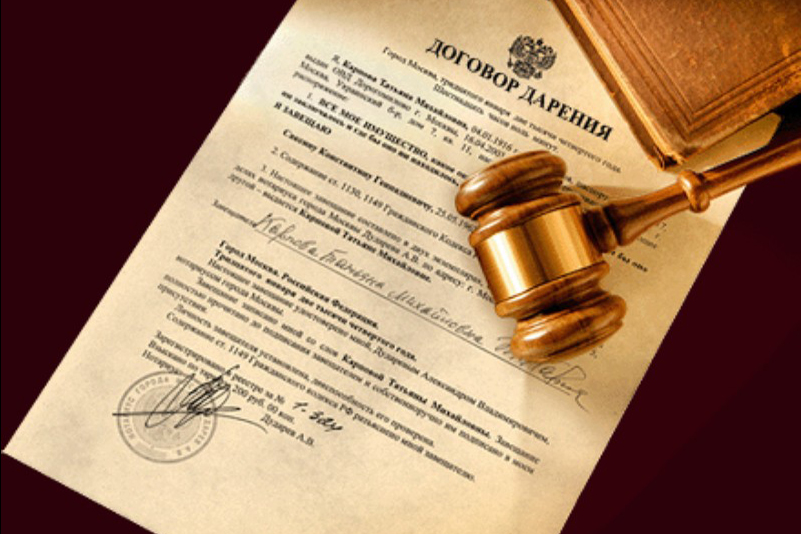 ДОГОВОР ДАРЕНИЯ
Город Москва, тридцатого января две тысячи четвертого года.
Шестнадцать часов ноль минут.
Я, Карпова Татьяна Михайловна, 04.01.1916
выдан ОВД Дорогомилово г. Москвы, 16.04.200
Москва, Украинский б-р, дом 7, кв. 11, нас
распоряжение:
1. ВСЕ МОЕ ИМУЩЕСТВО, какое
ни заключалось и где бы оно ни находилось,
Я ЗАВЕЩАЮ
бы оно
Савкину Константину Геннадиевичу, 25.05.196
2. Содержание ст. 1130, 1149 Гражданского Кодекса
3. Настоящее завещание составлено в двух экземплярах,
делах нотариуса города Москвы Дударева А.В. по адресу: г. М
другой - выдается Карповой Татьяне Михайловне.
Завещатель Карпова Татьяна Михайловна
Город Москва, Российская Федерация.
Тридцатого января две тысячи четвертого года.
Настоящее завещание удостоверено мной, Дударевым Александром Владимировичем,
нотариусом города Москвы.
Завещание записано мной со слов Карповой Татьяны Михайловны. Завещание
полностью прочитано до подписания завещателем и собственноручно им подписано в моем
присутствии.
Личность завещателя установлена, дееспособность его проверена.
Содержание ст. 1149 Гражданского кодекса РФ разъяснено мной завещателю.
Зарегистрировано в реестре за №
Взыскано по тарифу 200 руб. 00 коп.
Нотариус
Дударев А.В.